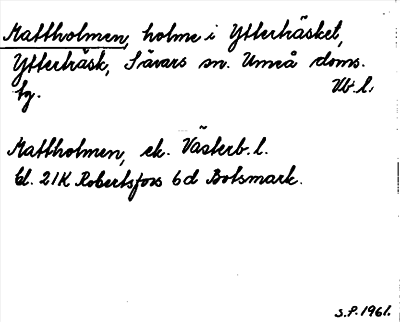 Mattholmen, holme i Ytterträsket,
Ytterträsk, Sävars sn. Umeå doms.
hg. Vb. l.
Mattholmen, ek. Västerb. l.
bl. 21K Robertsfors 6d Botsmark.
S.P. 1961.